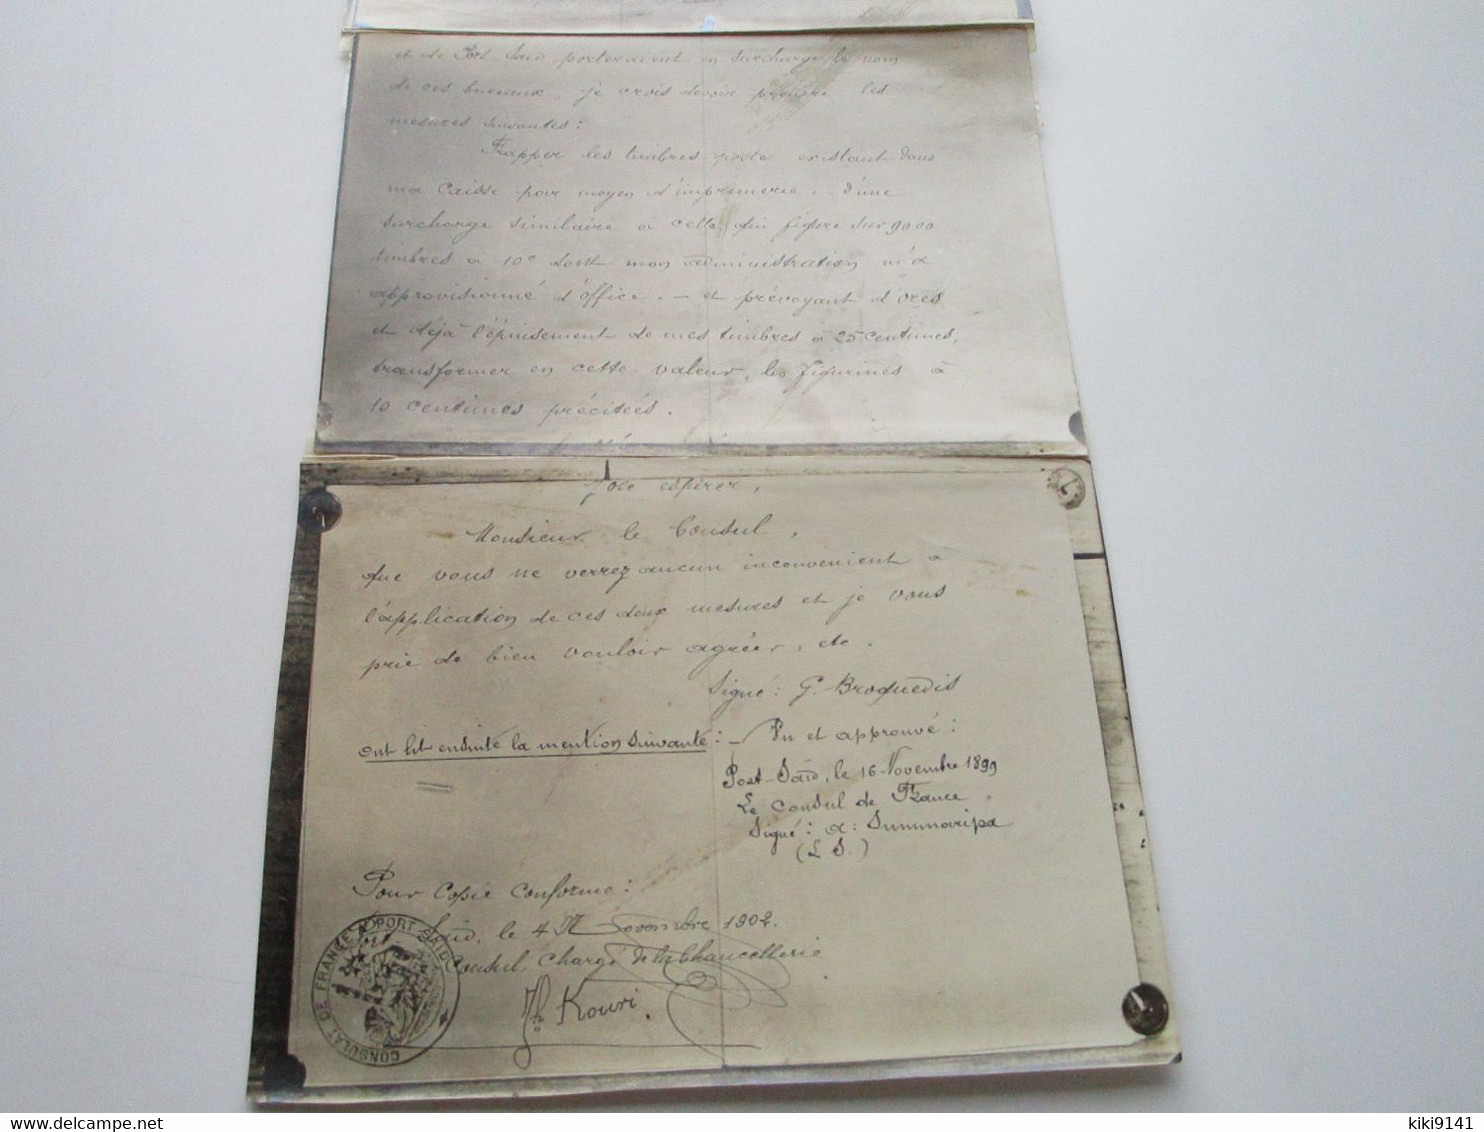 et de Port Saïd porteraient en surcharge le nom
de ces bureaux, je crois devoir prendre les
mesures suivantes :
Frapper les timbres poste existant dans
ma caisse par moyen d'imprimerie, - d'une
surcharge similaire à celle qui figure sur 9000
timbres à 10c dont mon administration m'a
approvisionné d'office. - et prévoyant d'ores
et déjà l'épuisement de mes timbres à 25 centimes,
transformer en cette valeur, les figurines à
10 centimes précitées.
J'ose espérer,
Monsieur le Consul,
que vous ne verrez aucun inconvenient à
l'application de ces deux mesures et je vous
prie de bien vouloir agréer, etc.
Signé : G. Broquedis
ont lit ensuite la mention suivante : - Vu et approuvé :
Port-Saïd, le 16 Novembre 1899
Le Consul de France,
Signé : A : Summaripa
(L S.)
Pour Copie conforme :
Saïd, le 4 Novembre 1902.
Consul, Chargé de la Chancellerie
Kouri
CONSULAT DE FRANCE A PORT SAÏD
kiki9141